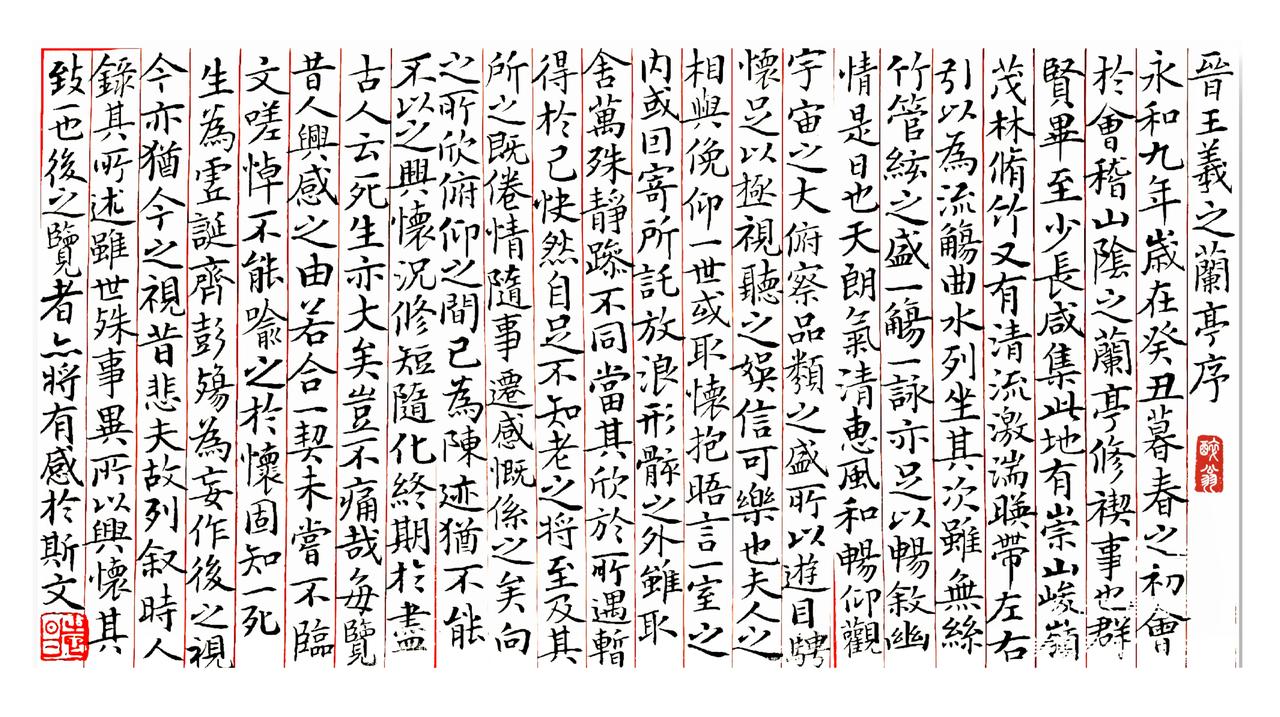 晉王羲之蘭亭序
醉翁
永和九年歲在癸丑暮春之初會
於會稽山陰之蘭亭修禊事也群
賢畢至少長咸集此地有崇山峻嶺
茂林脩竹又有清流激湍暎帶左右
引以為流觴曲水列坐其次雖無絲
竹管絃之盛一觴一詠亦足以暢敘幽
情是日也天朗氣清惠風和暢仰觀
宇宙之大俯察品類之盛所以遊目騁
懷足以極視聽之娛信可樂也夫人之
相與俛仰一世或取懷抱晤言一室之
内或因寄所託放浪形骸之外雖取
舍萬殊靜躁不同當其欣於所遇暫
得於己快然自足不知老之將至及其
所之既倦情隨事遷感慨係之矣向
之所欣俯仰之間已為陳迹猶不能
不以之興懷況修短隨化終期於盡
古人云死生亦大矣豈不痛哉每覽
昔人興感之由若合一契未嘗不臨
文嗟悼不能喻之於懷固知一死
生為虛誕齊彭殤為妄作後之視
今亦猶今之視昔悲夫故列叙時人
錄其所述雖世殊事異所以興懷其
致一也後之覽者亦將有感於斯文